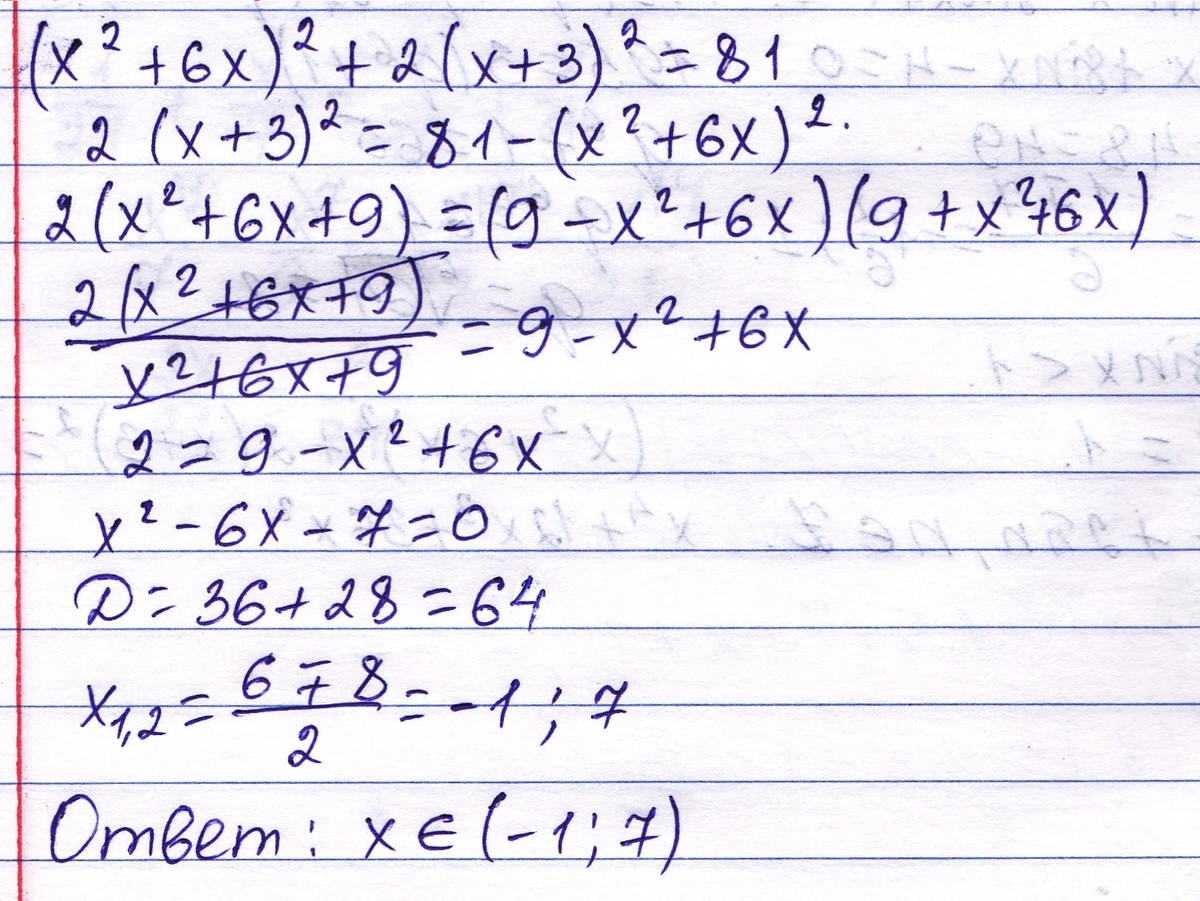 (x² + 6x)² + 2(x+3)² = 81
2 (x+3)² = 81 - (x² + 6x)².
2(x² + 6x + 9) = (9 - x² + 6x)(9 + x² + 6x)
2(x² + 6x + 9) / x² + 6x + 9 = 9 - x² + 6x
2 = 9 - x² + 6x
x² - 6x - 7 = 0
D = 36 + 28 = 64
x₁,₂ = 6 ∓ 8 / 2 = -1 ; 7
Ответ: x ∈ (-1; 7)